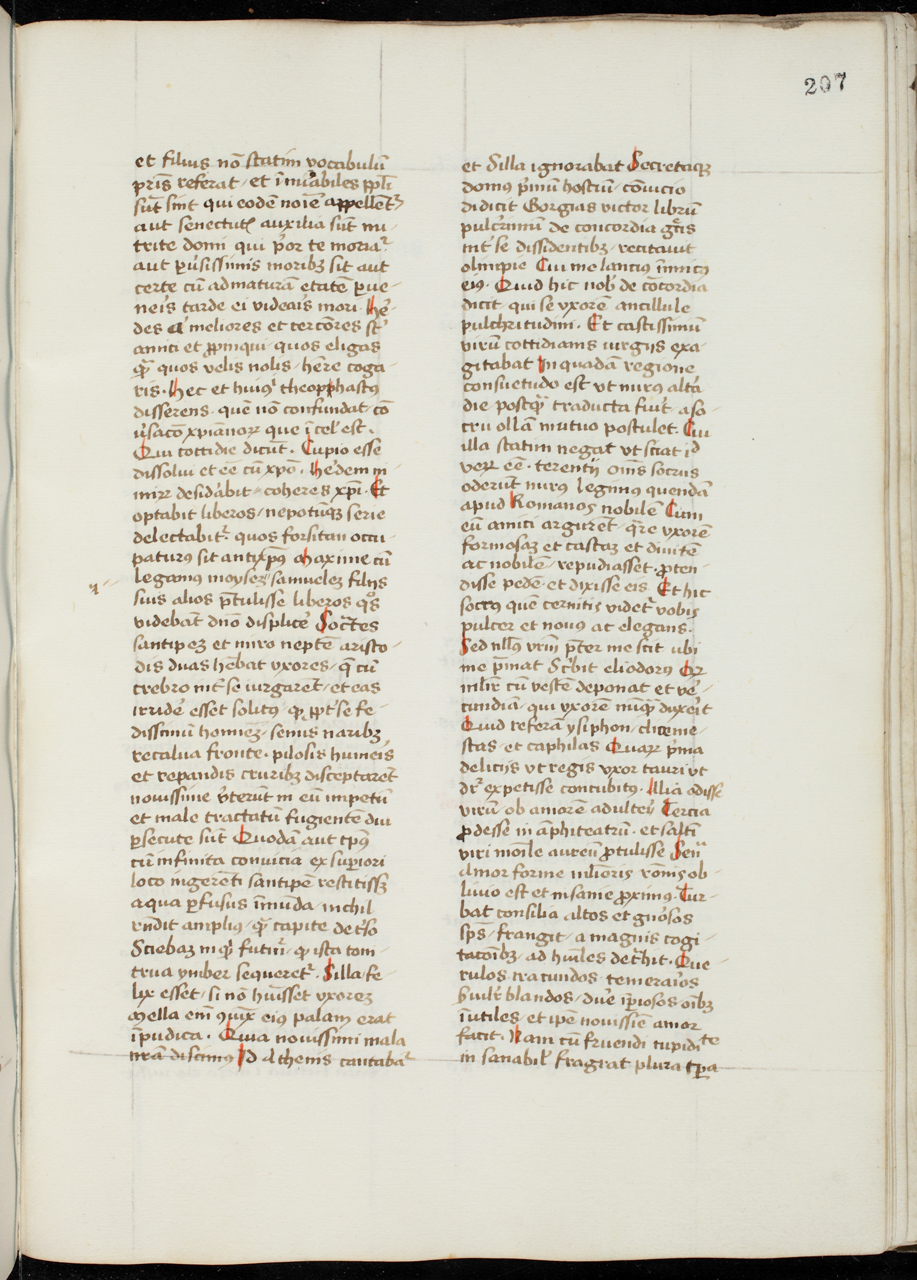 207
et filius nō statim vocabulū
pris̄ referat · et īnūabiles ppl̄i
sūt sint qui eodē noīe appellent᷑
aut senectut̄ auxilia sūt nu-
trite domi qui p̄or te moria᷑
aut ꝑusissimis moribꝫ sit aut
certe cū ad maturā etatē ꝑue-
neis̄ tarde ei videais̄ mori · He᷑-
des at̄ meliores et tercōres st̄
amici et ꝓpinqui · quos eligas
q̄ꝫ quos velis nolis · hēre coga-
ris · Hec et huiꝰ theopphastꝰ
disserens · quē nō confundat cō
ūsacō xp̄ianoꝝ que ī cel̄ est ·
Qui cottidie dicūt · Cupio esse
dissolui et eē cū xp̄o · Hedem ni
miꝝ desid᷑abit coheres xp̄i · Et
optabit liberos · nepotūqꝫ serie
delectabit᷑ · quos forsitan occu-
paturꝰ sit antixp̄ꝰ Maxime cū
legamꝰ moysez samuelez filijs
suis alios p̄tulisse liberos qͦs
videbāt dn̄o displicē Soct̄es
santipez et miro neptē aristo-
dis duas hēbat vxores · q̄ cū
crebro int̄ se iurgarēt · et eas
irridē esset solitꝰ · ꝙ ꝓpt̄ se fe-
dissimū hominez · semis naribꝫ
recalua fronte · pilosis humeis̄
et repandis cruribꝫ disceptarēt
nouissime v̄terūt in eū impetū
et male tractatū fugientē diu
ꝑsecute sūt Quodā aut tp̄ꝰ
cū infinita conuicia ex supiori
loco ingerēti santipē restitissꝫ
aqua ꝑfusus īmūda · inchil
rn̄dit ampliꝰ · q̄ꝫ capite det̄so
Sciebaz inqͥ futur̄ · ꝙ ista tom-
trua ymber sequeret᷑ · Silla fe-
lix esset · si nō hūisset vxorez
Mella eni᷑ ꝯiūx eiꝰ palam erat
īpudica · Quia nouissimi mala
nr̄ā discimꝰ Id Athenis cantaba᷑
et silla ignorabat Secretaqꝫ
domꝰ p̄mū hostiū · cōuicio
didicit Gorgias victor librū
pulcr̄imū de concordia gr̄tis
int̄ se dissidentibꝫ · recitauit
olimpie Cui melantiꝰ īnnicꝰ
eiꝰ · Quid hic nob̄ de cōcordia
dicit qui se vxorē ancillule
pulchritudini · Et castissimū
virū cottidianis iurgijs exa-
gitabat In quadā regione
consuetudo est vt nurus alt̄a
die postq̄ꝫ traducta fiūt a so-
cru ollā mutuo postulet · Cui
illa statim negat vt sciat id
veꝝ eē · terentij oīns socrus
oderūt nurꝰ legimꝰ quendā
apud Romanos nobilē Cum
eū amici argurēt · qr̄e vxorē
formosaz et castaz et diuitē
ac nobilē · repudiasset · ꝓten-
disse pedē · et dixisse eis Et hic
soccꝰ quē cernitis videt᷑ vobis
pulcer et nouꝰ ac elegans ·
Sed nllꝰ vr̄m p̄ter me scit ubi
me p̄mat Sc̄bit eliodorꝰ Qꝛ
mlīr cū vestē deponat et vē-
cundiā · qui vxorē nūqꝫ duxeit̄
Quid referā ysiphon · cliteme-
stas · et caphilas Quaꝝ p̄ma
delicijs vt regis vxor tauri vt
dr̄ expetisse concubitꝰ · Alia odisse
virū · ob amorē adulteī Tercia
ꝓdesse in āphiteatrū · et salt̄i
viri moīle aureū ꝓtulisse Sen̄
Amor forme mlieris rōnis ob-
liuio est et insanie ꝓximꝰ · Tur-
bat consilia altos et gn̄osos
sp̄s · frangit · a magnis cogi-
tacōibꝫ · ad hūiles det̄hit · Que
rulos iracundos · temerai̊os
s̄uilr̄ blandos · due īpiosos oībꝫ
īutiles · et ip̄e nouissiē amor
facit · Nam cū fruendi cupidi te
in sanabil̄ fragrat plura tp̄a